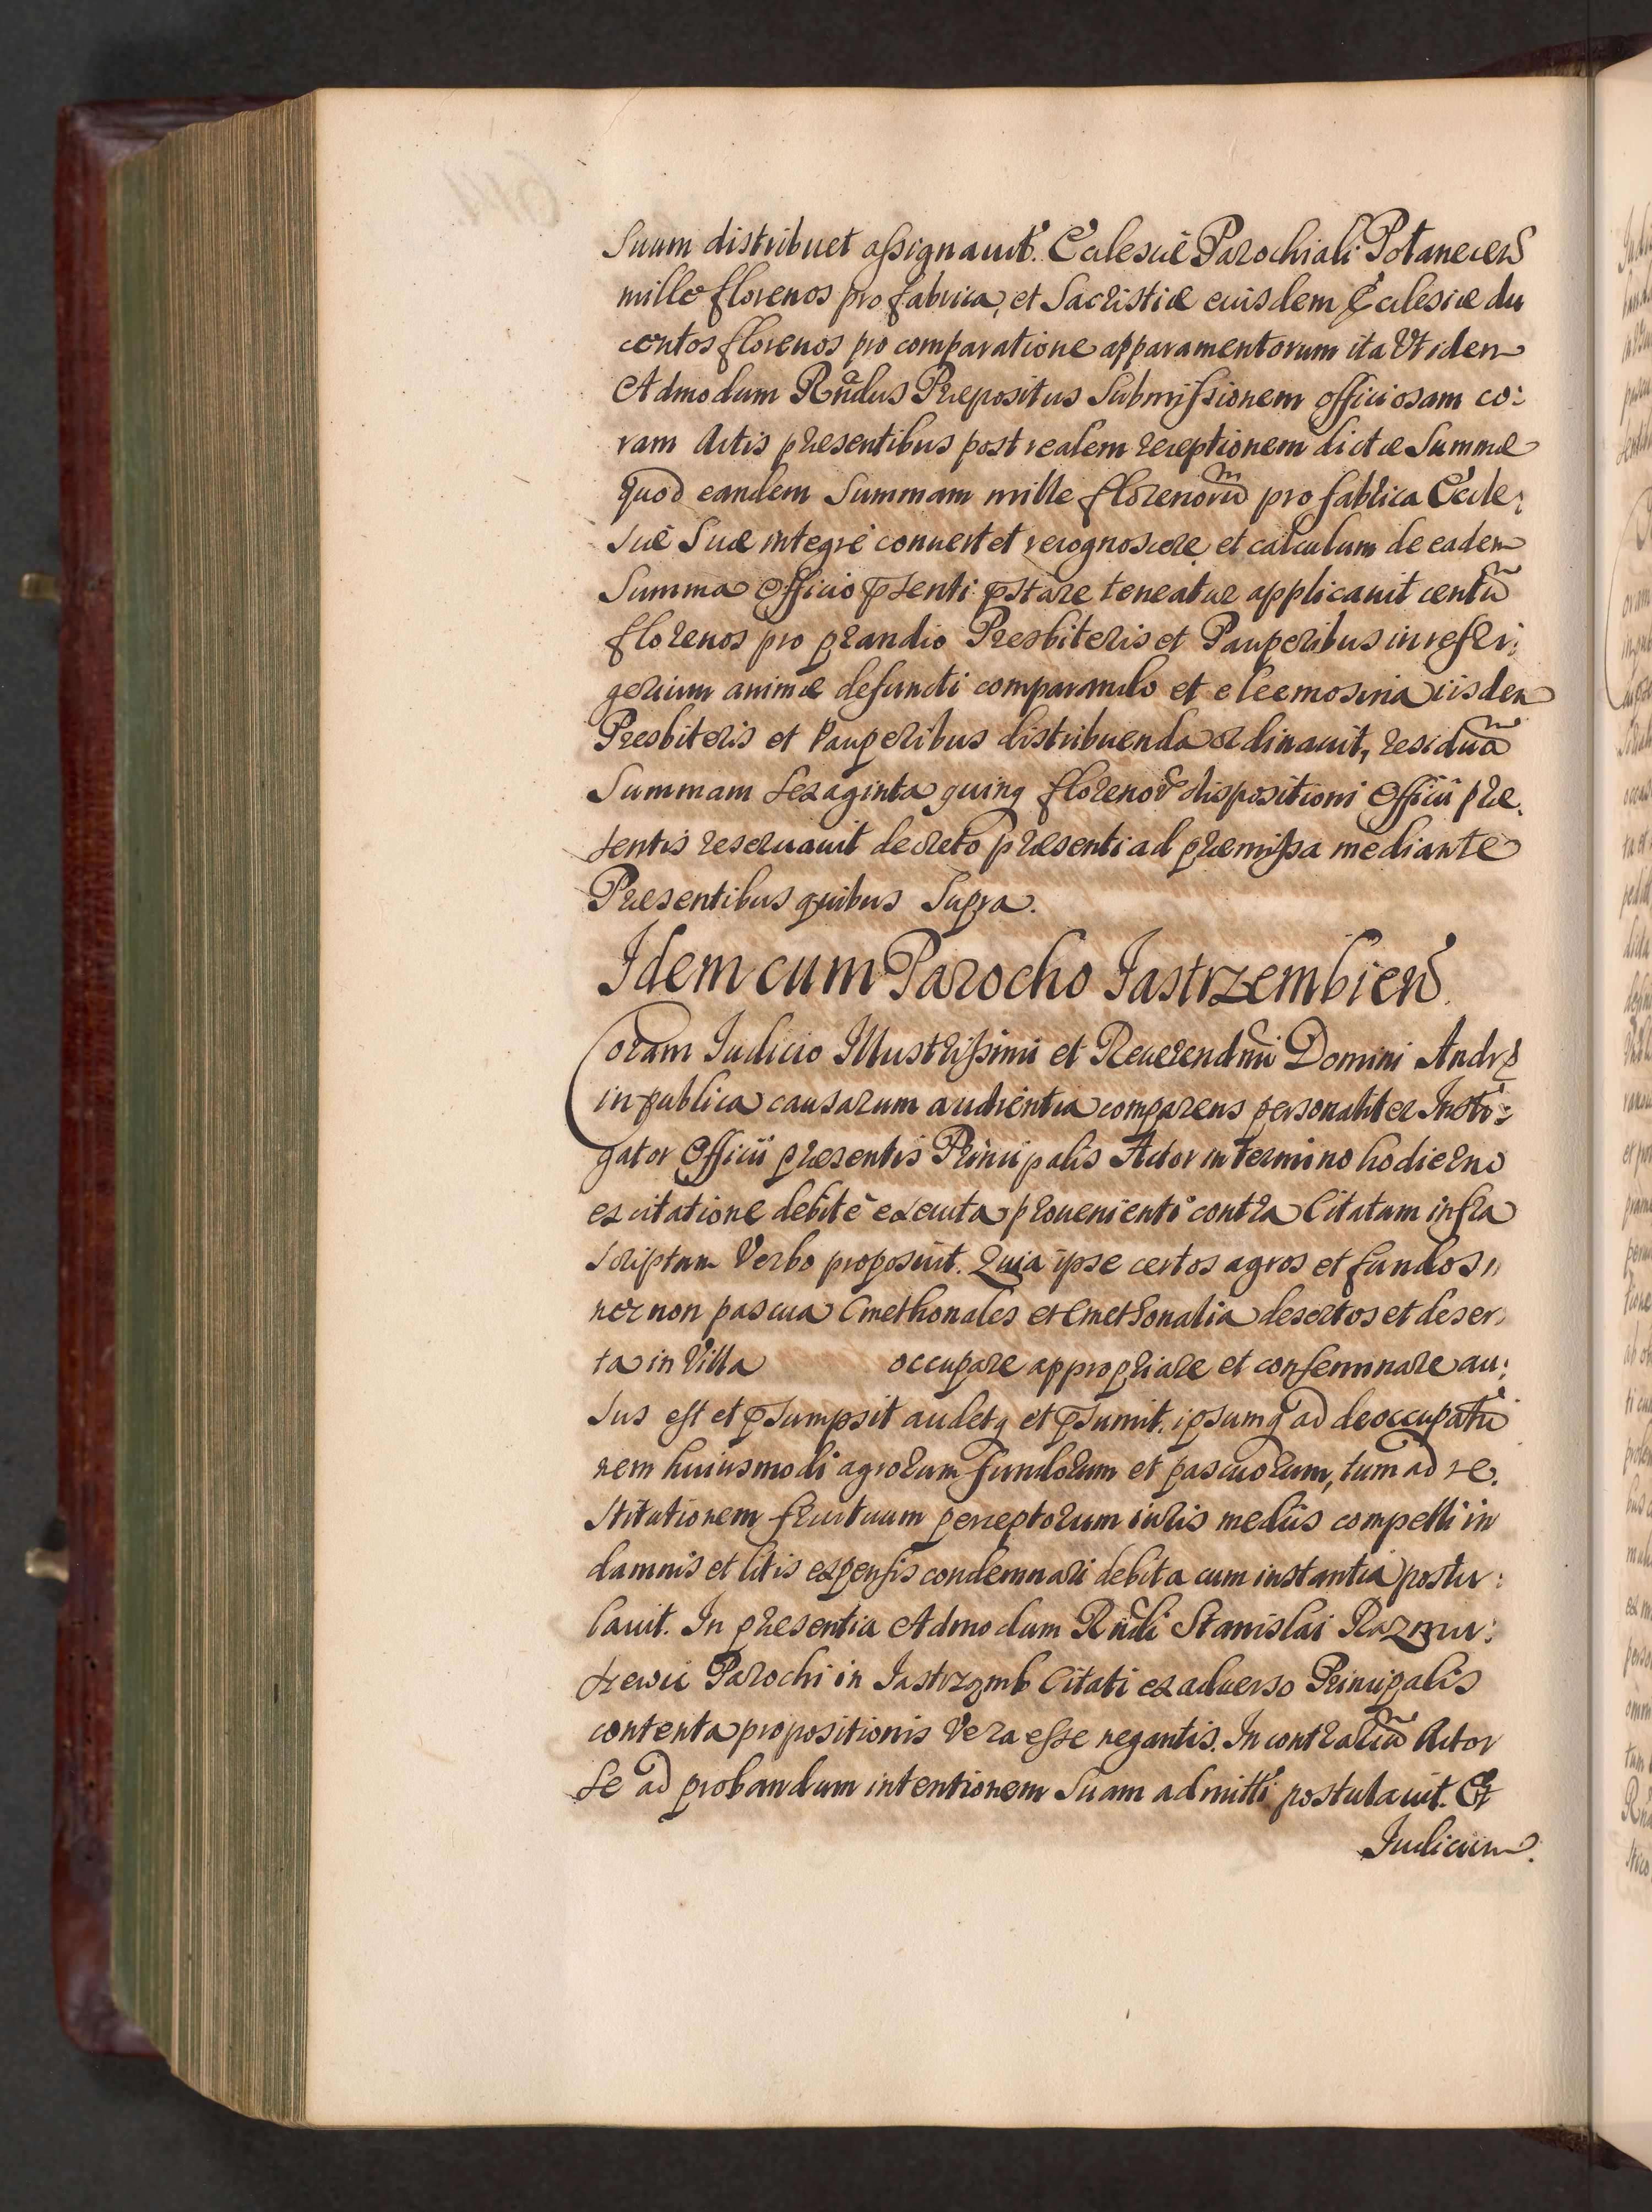 Suum distribuet assignauit. Ecclesiæ Parochiali Potanecen̄
mille florenos pro fabrica, et Sacristiæ euisdem Ecclesiæ du
centos florenos pro comparatione apparamentorum ita Vt idem
Admodum Rndus Præpositus Submissionem officiosam co:
ram Actis præsentibus post realem receptionem dictæ Summæ
quod eandem Summam mille florenorū pro fabrica Eccle:
siæ Suæ integrè conuertet recognoscere et calculum de eadem
Summa Officio pſenti pſtare teneatur applicauit centū
florenos pro prandio Presbiteris et Pauperibus in refri:
gerium animæ defuncti comparando et eleemosina iisdem
Presbiteris et Pauperibus distribuenda ordinauit, residuā
Summam sexaginta quinq florenorū dispositioni Officii præ.
sentis reseruauit decreto præsenti ad præmissa mediante
Præsentibus quibus Supra.
Idem cum Parocho Jastrzembien̄.
Coram Iudicio Illustrissimi et Reuerendmi Domini Andreæ
in publica causarum audientia comparens personaliter Insti:
gator Officii præsentis Principalis Actor in termino hodierno
ex citatione debitè executa prouenienti contra Citatum infra
scriptum Verbo proposuit. Quia ipse certos agros et fundos
nec non pascua Cmethonales et Cmethonalia desertos et deser
ta in Villa occupare appropriare et conseminare au:
sus est et pſumpsit audetq et pſumit. ipsumq ad deoccupatio
nem huiusmodi agrorum fundorum et pascuorum, tum ad re.
stitutionem fructuum perceptorum iuris mediis compelli in
damnis et litis expensis condemnari debita cum instantia postu:
lauit. In præsentia Admodum Rndi Stanislai Razmu:
sewic Parochi in Jastrzęmb Citati ex aduerso Principalis
contenta propositionis Vera esse negantis. In contrariū Actor
se ad probandum intentionem Suam admitti postulauit. Et
Iudicium.